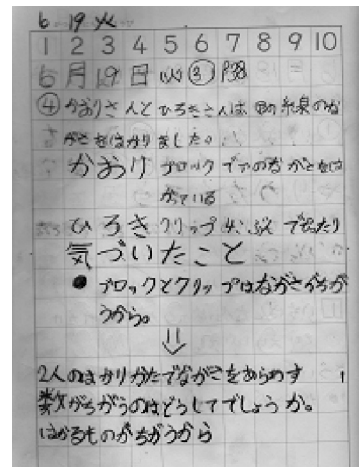 6 19 火
1 2 3 4 5 6 7 8 9 10
6月19日(火)③ P38
④ かおりさんとひろきさんは 図の 糸泉のな
がさをはかりました。
かおり ブロック でアのながさをは
かっている
ひろき クリップ 4こぶん でぴったり
気づいたこと
● ブロックとクリップはながさがちが
うから。
⇓
2人のはかりかたでながさをあらわす
数がちがうのはどうしてでしょうか。
はかるものがちがうから